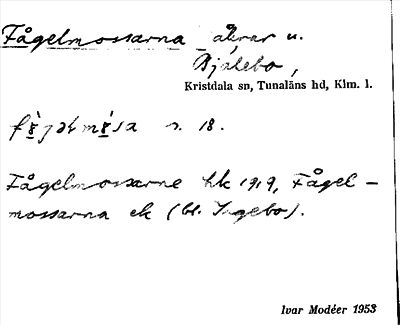 Fågelmossarna åkrar u.
Bjälebo,
Kristdala sn, Tunaläns hd, Klm. l.
s. 18.
Fågelmossarne hk 1919, Fågel-
mossarna ek (bl. Ingebo).
Ivar Modéer 1953